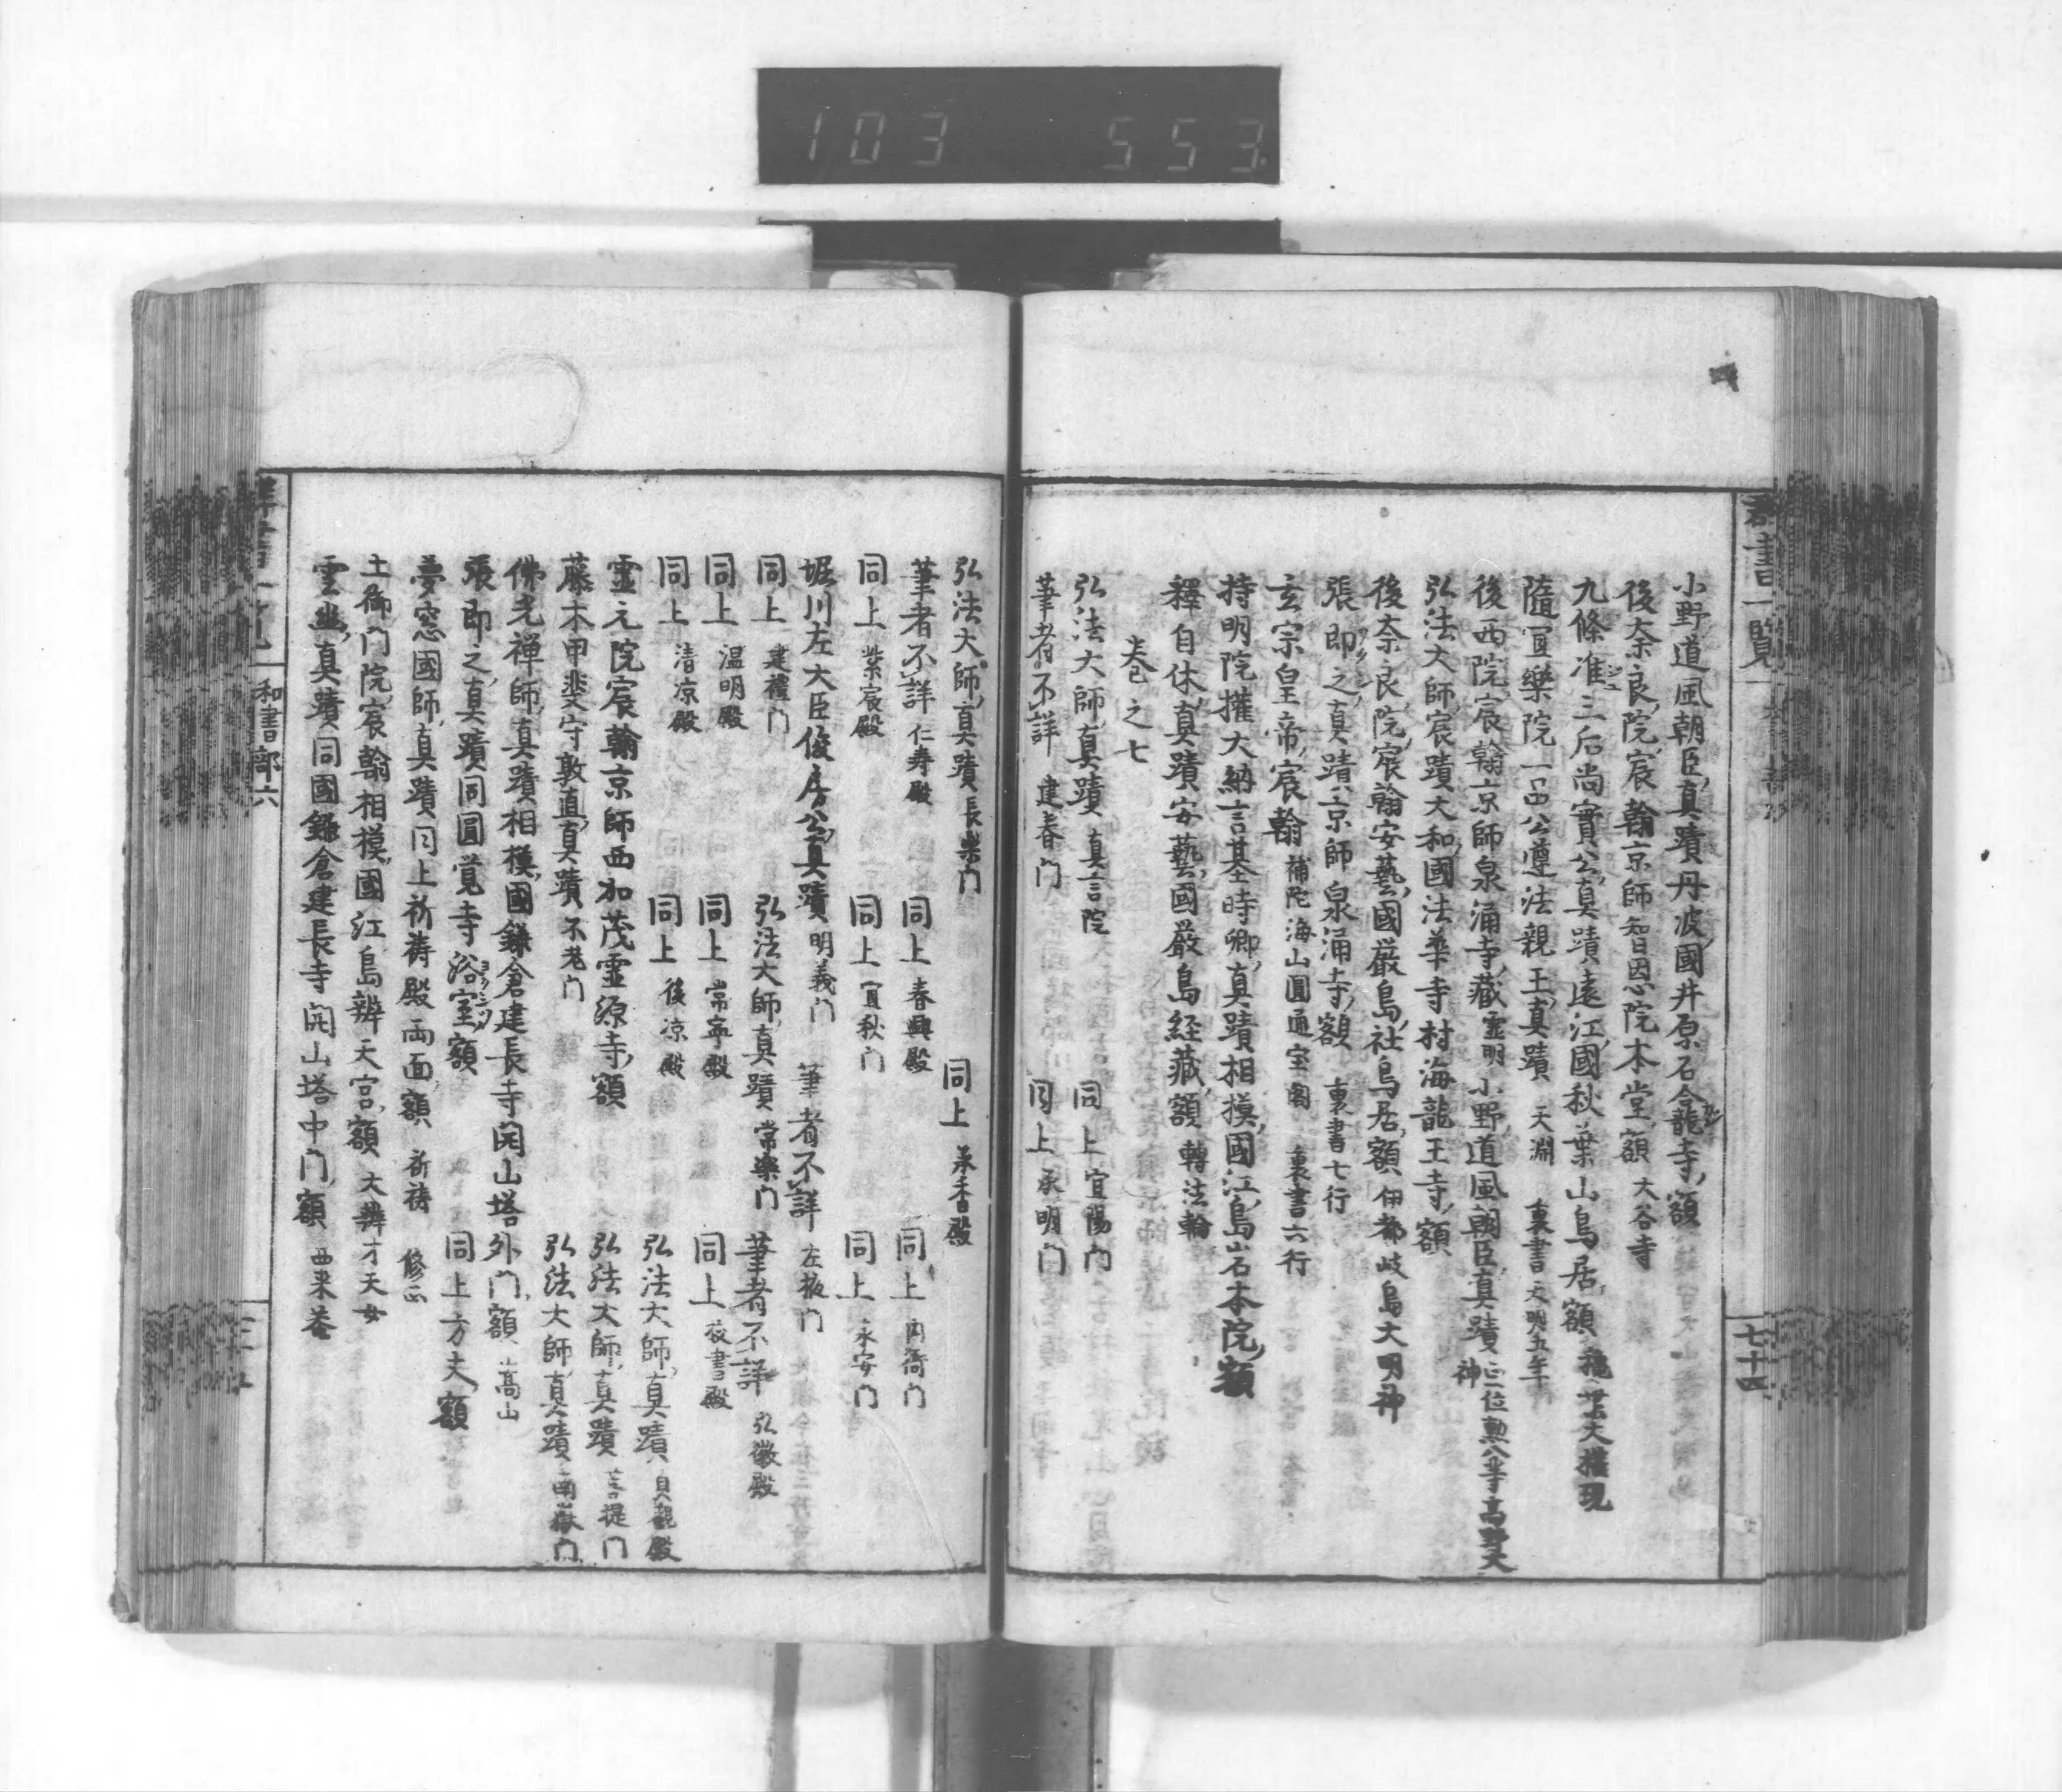 103 553
群書一覧
七十四
小野道風朝臣真蹟丹波國井原石龕寺額
後奈良院宸翰京師知恩院本堂額 大谷寺
九條准三后尚實公真蹟遠江國秋葉山鳥居額 大權現
隨宜樂院一品公遵法親王真蹟 天淵 裏書文明五年
後西院宸翰京師泉涌寺蔵 霊明 小野道風朝臣真蹟 正一位勲八等高野大神
弘法大師宸蹟大和國法華寺村海龍王寺額
後奈良院宸翰安藝國厳島社鳥居額 伊都岐島大明神
張即之真蹟京師泉涌寺額 裏書七行
玄宗皇帝宸翰 補陀海山圓通宝閣 裏書六行
持明院權大納言基時卿真蹟相模國江島岩本院額
釋自休真蹟安藝國厳島経藏額 轉法輪
巻之七
弘法大師真蹟 真言院 同上 宜陽門
筆者不詳 建春門 同上 承明門
弘法大師真蹟 長楽門 同上 承香殿
筆者不詳 仁寿殿 同上 春興殿 同上 内衛門
同上 紫宸殿 同上 宜秋門 同上 永安門
堀川左大臣俊房公真蹟 明義門 筆者不詳 左掖門
同上 建禮門 弘法大師真蹟 常樂門 筆者不詳 弘徽殿
同上 温明殿 同上 常寧殿 同上 校書殿
同上 清凉殿 同上 後凉殿 弘法大師真蹟 貞観殿
霊元院宸翰京師西加茂霊源寺額 弘法大師真蹟 菩提門
藤木甲斐守敦直真蹟 不老門 弘法大師真蹟 南嶽門
佛光禅師真蹟相模國鎌倉建長寺開山塔外門額 嵩山
張即之真蹟同圓覚寺浴室額 同上方丈額
夢窓國師真蹟同上祈祷殿両面額 祈祷 修正
土御門院宸翰相模國江島辨天宮額 大辨才天女
霊幽真蹟同國鎌倉建長寺開山塔中門額 西来菴
和書部六